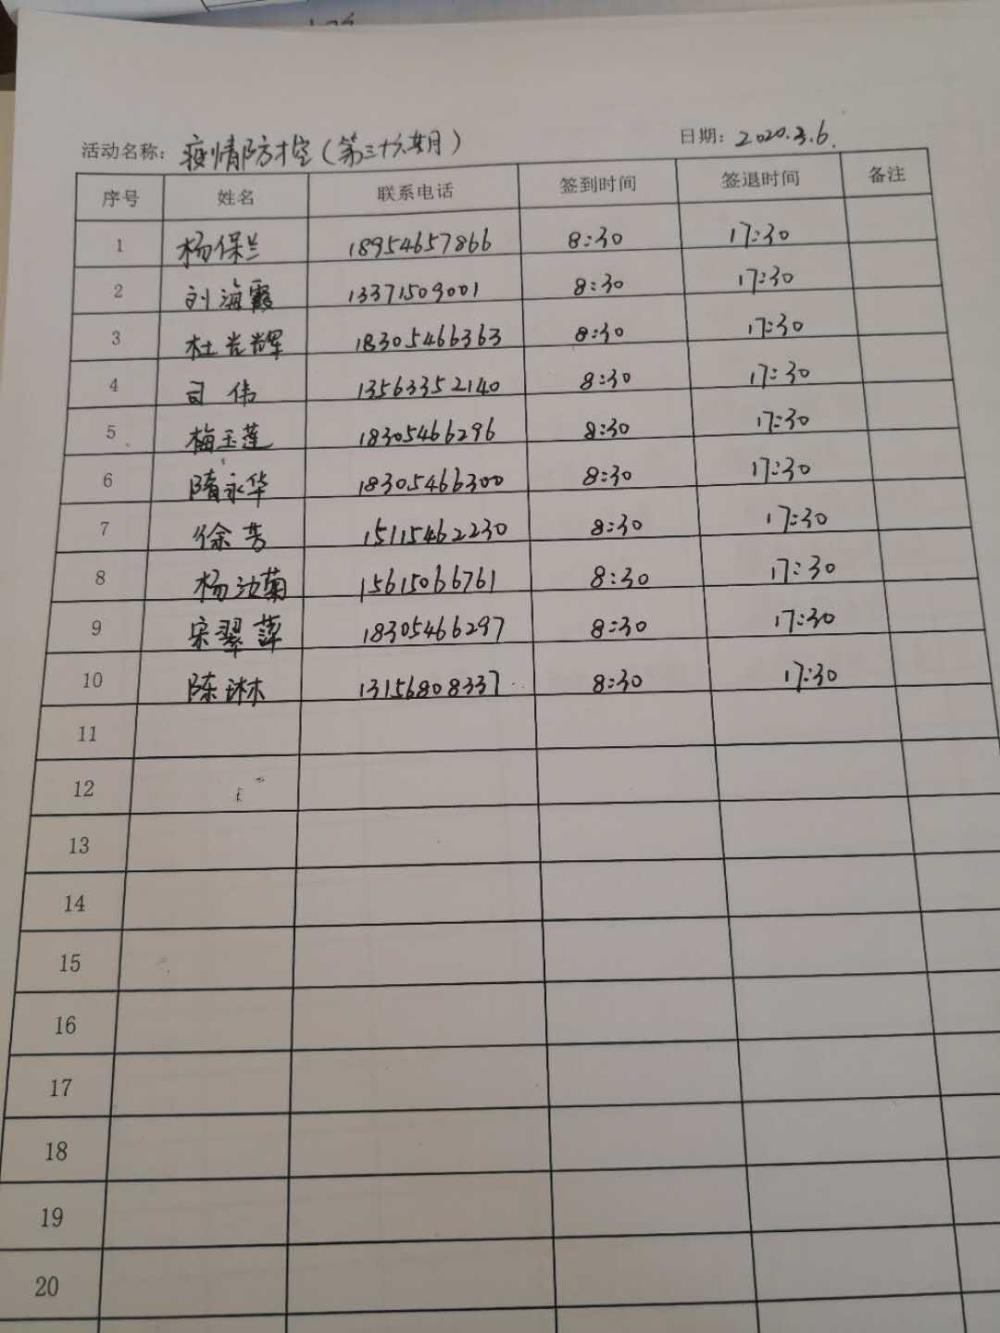 活动名称: 疫情防控(第三十六期) 日期: 2020.3.6.
序号 姓名 联系电话 签到时间 签退时间 备注
1 杨保兰 18954657866 8:30 17:30
2 刘海霞 13371509001 8:30 17:30
3 杜光辉 18305466363 8:30 17:30
4 司伟 13563352140 8:30 17:30
5 梅玉莲 18305466296 8:30 17:30
6 隋永华 18305466300 8:30 17:30
7 徐芳 15115462230 8:30 17:30
8 15615066761 8:30 17:30
9 宋翠萍 18305466297 8:30 17:30
10 陈淋 13156808337 8:30 17:30
11
12
13
14
15
16
17
18
19
20